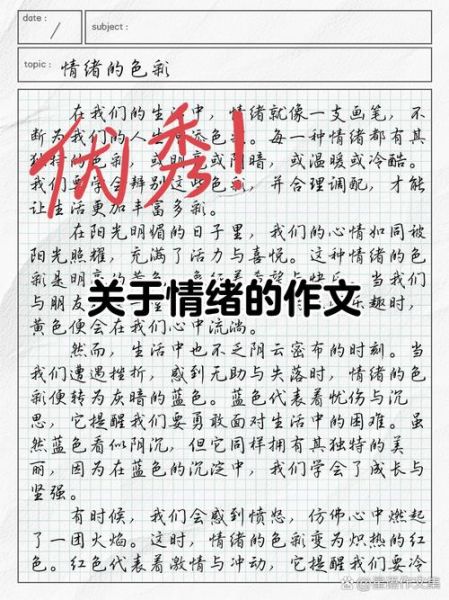 date :
subject :
topic : 情绪的色彩
在我们的生活中，情绪就像一支画笔，不
断为我们的人生添色。每一种情绪都有其
独特的色彩，或明亮或阴暗，或温暖或冷酷。
我们要学会辨别这些色彩，并合理调配，才能
让生活更加丰富多彩。
优秀！
在阳光明媚的日子里，我们的心情如同被
阳光照耀，充满了活力与喜悦。这种情绪的色
彩是明亮的黄色，当我们
关于情绪的作文
与朋友乐趣时，
黄色便会在我们心中流淌。
然而，生活中也不乏阴云密布的时刻。当
我们遭遇挫折，感到无助与失落时，情绪的色
彩便转为灰暗的蓝色。蓝色代表着忧伤与沉
思，它提醒我们要勇敢面对生活中的困难。虽
然蓝色看似阴沉，但它同样拥有其独特的美
丽，因为在蓝色的沉淀中，我们学会了成长与
坚强。
有时候，我们会感到愤怒，仿佛心中燃起
了一团火焰。这时，情绪的色彩变为炽热的红
色。红色代表着激情与冲动，它提醒我们要冷